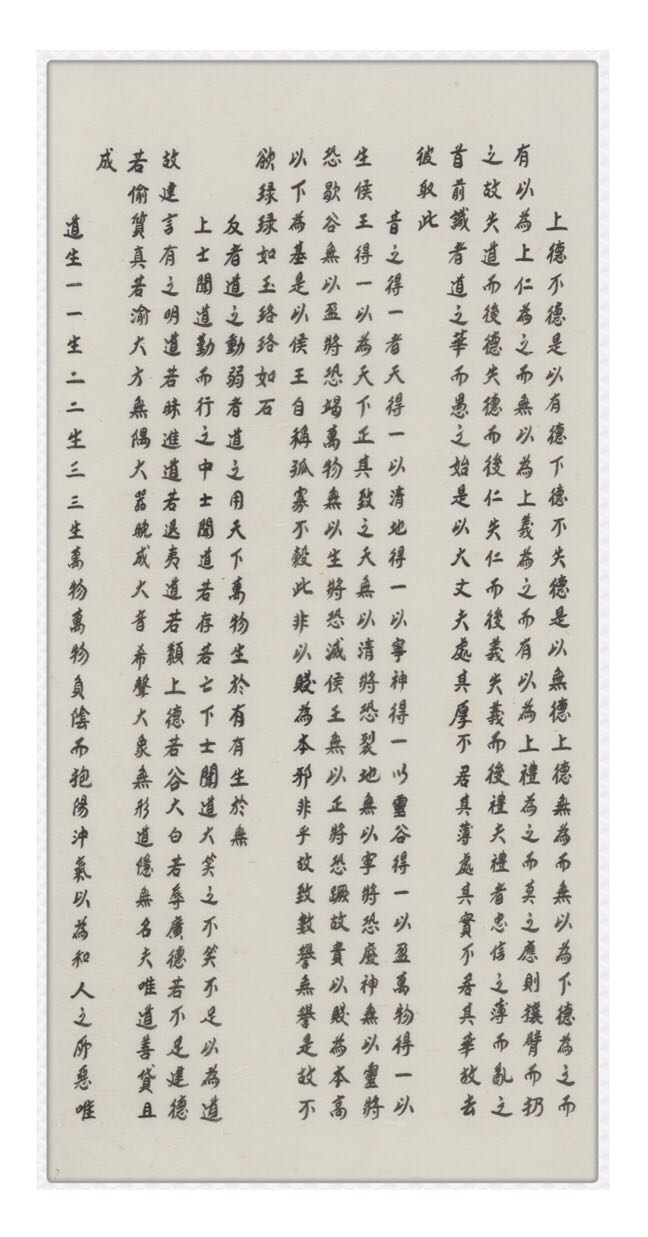 上德不德是以有德下德不失德是以無德上德無為而無以為下德為之而
有以為上仁為之而無以為上義為之而有以為上禮為之而莫之應則攘臂而扔
之故失道而後德失德而後仁失仁而後義失義而後禮夫禮者忠信之薄而亂之
首前識者道之華而愚之始是以大丈夫處其厚不居其薄處其實不居其華故去
彼取此
昔之得一者天得一以清地得一以寧神得一以靈谷得一以盈萬物得一以
生侯王得一以為天下正其致之天無以清將恐裂地無以寧將恐廢神無以靈將
恐歇谷無以盈將恐竭萬物無以生將恐滅侯王無以正將恐蹶故貴以賤為本高
以下為基是以侯王自稱孤寡不穀此非以賤為本邪非乎故致數譽無譽是故不
欲琭琭如玉珞珞如石
反者道之動弱者道之用天下萬物生於有有生於無
上士聞道勤而行之中士聞道若存若亡下士聞道大笑之不笑不足以為道
故建言有之明道若昧進道若退夷道若纇上德若谷大白若辱廣德若不足建德
若偷質真若渝大方無隅大器晚成大音希聲大象無形道隱無名夫唯道善貸且
成
道生一一生二二生三三生萬物萬物負陰而抱陽沖氣以為和人之所惡唯